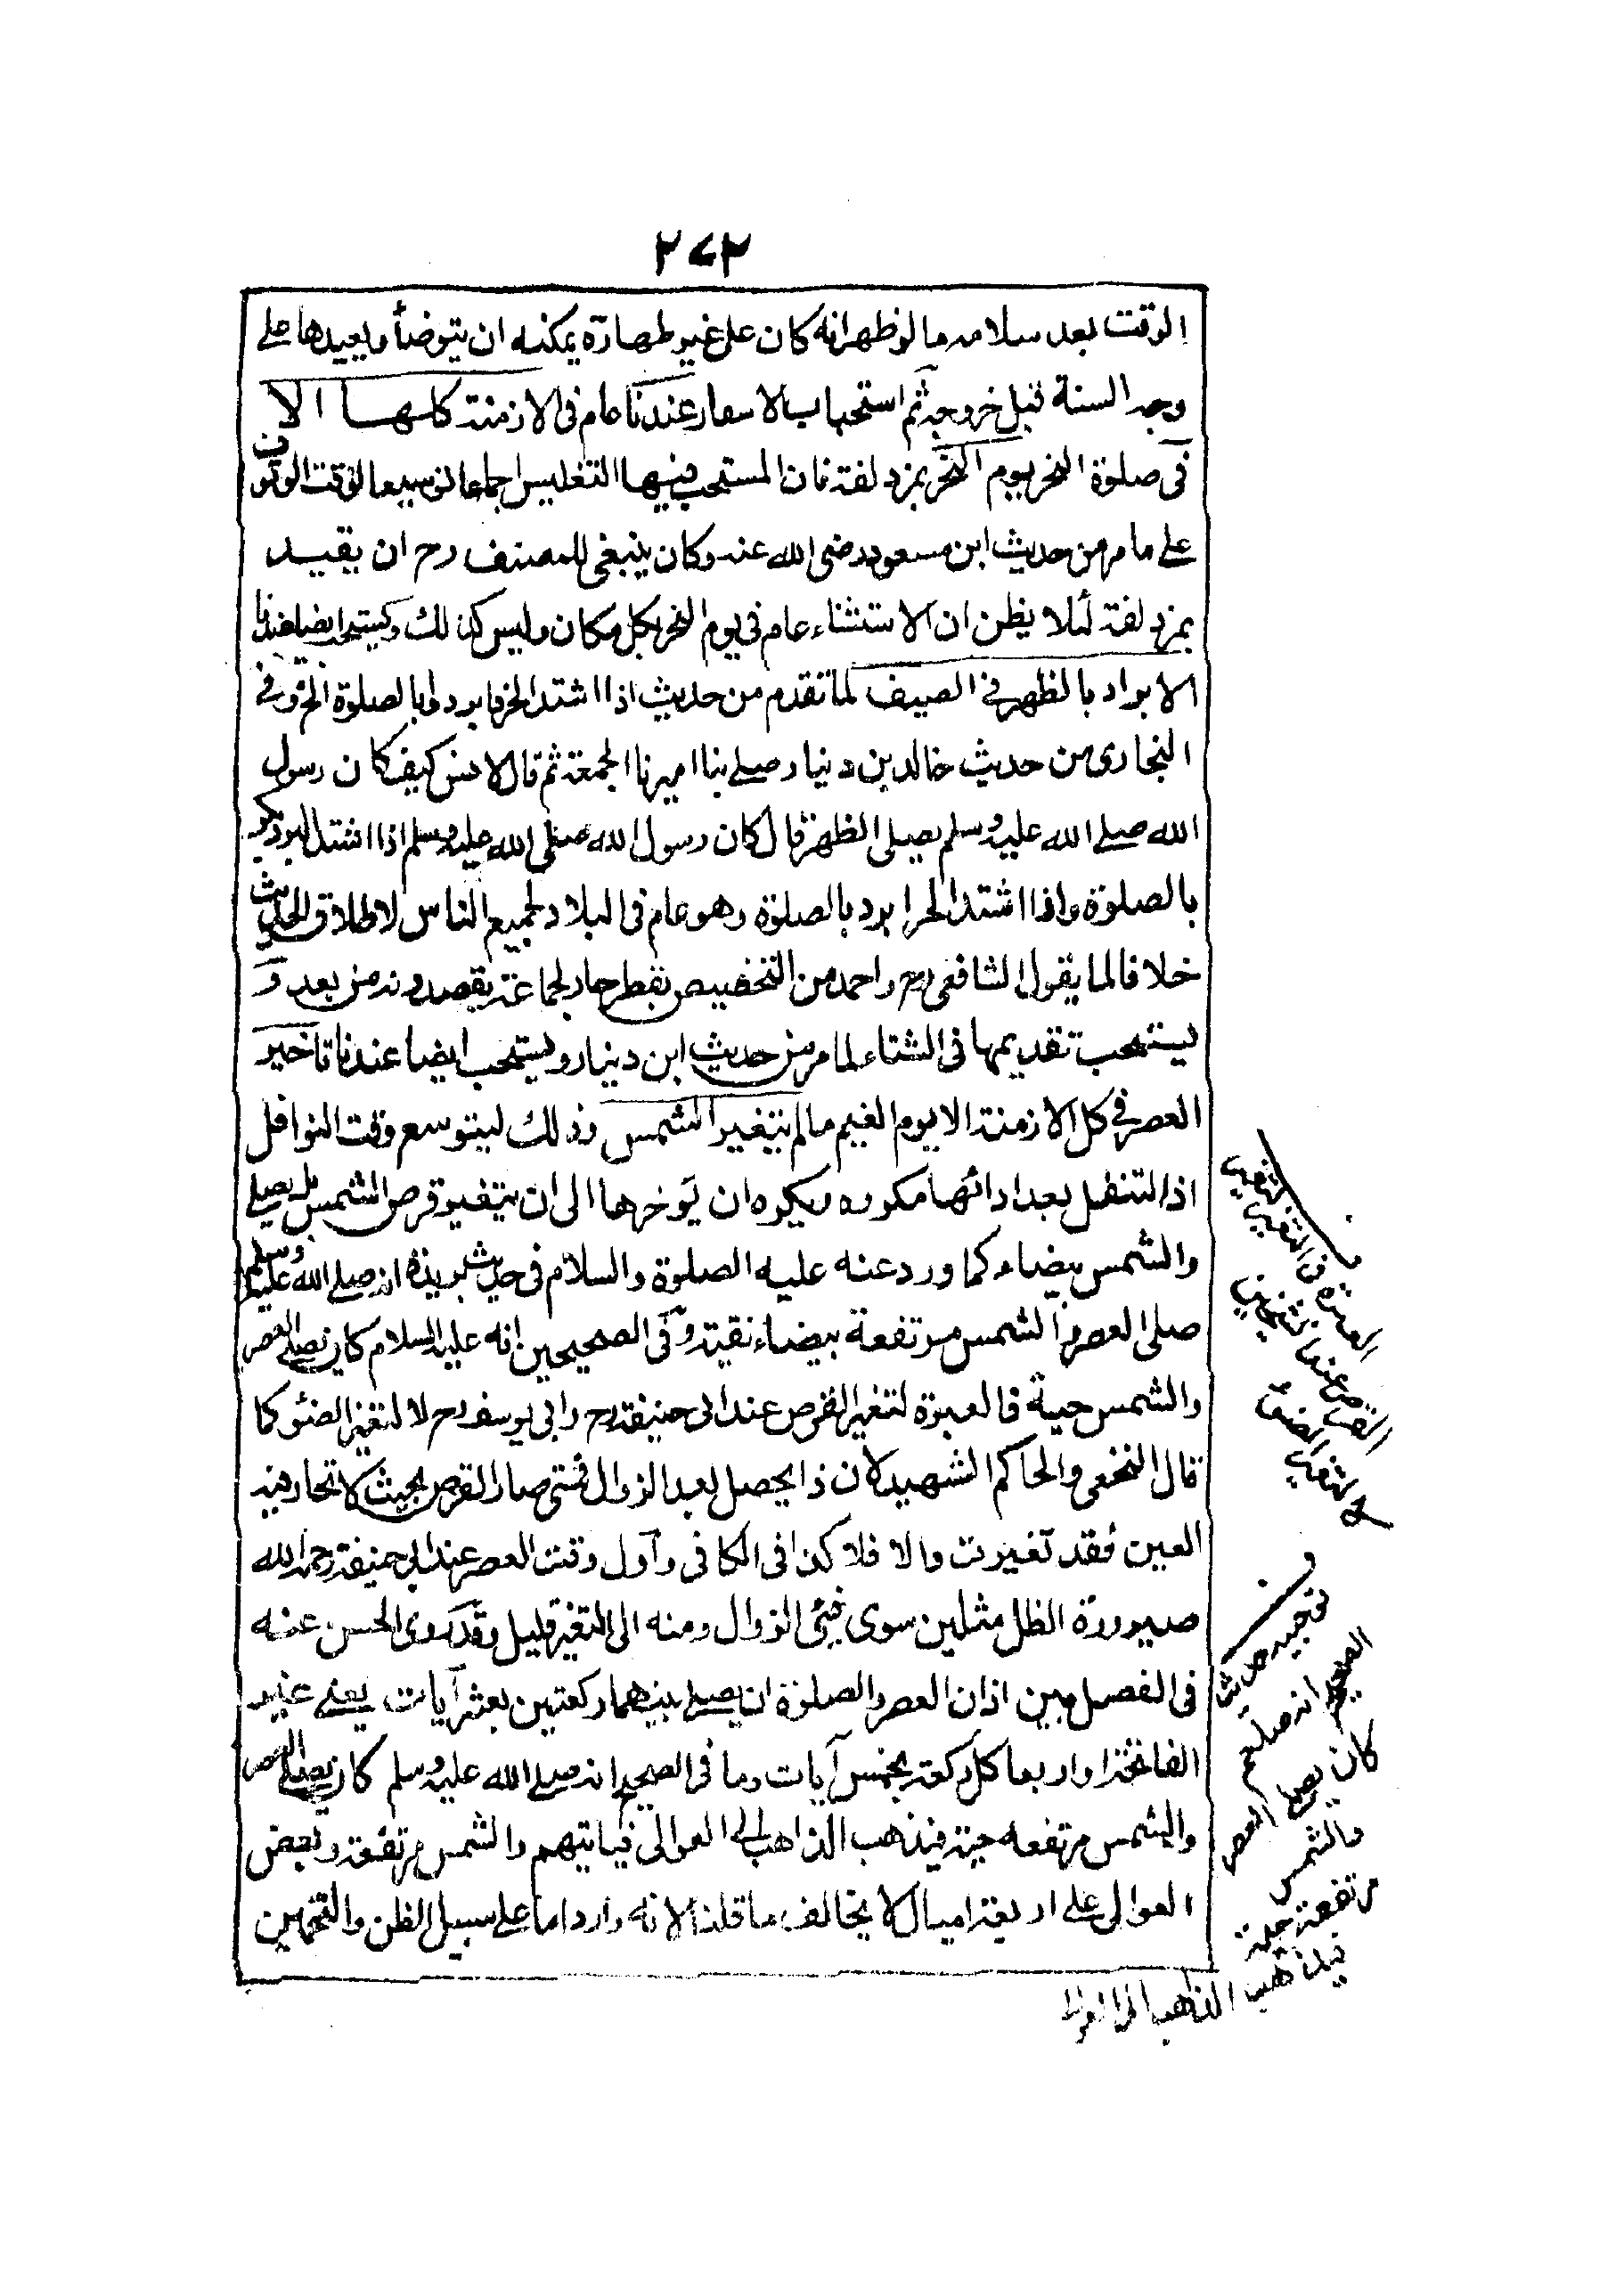 ٢٧٢
الوقت بعد سلامه ما لو ظهر انه كان على غير طهارة يمكنه ان يتوضأ ويعيدها على
وجه السنة قبل خروجه ثم استحباب الاسفار عندنا عام فى الازمنة كلها الا
فى صلوة الفجر يوم النحر بمزدلفة فان المستحب فيها التغليس اجماعا توسيعا لوقت الوقوف
على ما مر من حديث ابن مسعود رضى الله عنه وكان ينبغى للمصنف رح ان يقيد
بمزدلفة لئلا يظن ان الاستثناء عام فى يوم النحر بكل مكان وليس كذلك ويستحب ايضا عندنا
الابراد بالظهر فى الصيف لما تقدم من حديث اذا اشتد الحر فابردوا بالصلوة الخ وفى
البخارى من حديث خالد بن دينار صلى بنا اميرنا الجمعة ثم قال لانس كيف كان رسول
الله صلى الله عليه وسلم يصلى الظهر قال كان رسول الله صلى الله عليه وسلم اذا اشتد البرد بكر
بالصلوة واذا اشتد الحر ابرد بالصلوة وهو عام فى البلاد لجميع الناس لاطلاق الحديث
خلافا لما يقول الشافعى رح واحمد من التخصيص بقطر حار لجماعة يقصدونه من بعد و
يستحب تقديمها فى الشتاء لما مر من حديث ابن دينار ويستحب ايضا عندنا تاخير
العصر فى كل الازمنة الا يوم الغيم ما لم يتغير الشمس وذلك ليتوسع وقت النوافل
اذ التنفل بعد ادائها مكروه ويكره ان يوخرها الى ان يتغير قرص الشمس بل يصلى
والشمس بيضاء كما ورد عنه عليه الصلوة والسلام فى حديث بريدة انه صلى الله عليه وسلم
صلى العصر والشمس مرتفعة بيضاء نقية وفى الصحيحين انه عليه السلام كان يصلى العصر
والشمس حية فالعبرة لتغير القرص عند ابى حنيفة رح وابى يوسف رح لا لتغير الضوء كما
قال النخعى والحاكم الشهيد لان ذا يحصل بعد الزوال فمتى صار القرص بحيث لا تحار فيه
العين فقد تغيرت والا فلا كذا فى الكافى واول وقت العصر عند ابى حنيفة رحمه الله
صيرورة الظل مثلين سوى فيئ الزوال ومنه الى التغير قليل وقد روى الحسن عنه
فى الفصل بين اذان العصر والصلوة ان يصلى بينهما ركعتين بعشر آيات يعنى غير
الفاتحة او اربعا كل ركعة بخمس آيات وما فى الصحيح انه صلى الله عليه وسلم كان يصلى العصر
والشمس مرتفعة حية فيذهب الذاهب الى العوالى فياتيهم والشمس مرتفعة وبعض
العوالى على اربعة اميال لا يخالف ما قلنا لانه وارد اما على سبيل الظن والتخمين
العبرة فى التغير لتغير
القرص عند الشيخين
لا لتغير الضوء
توجيه حديث
الصحيح انه صلعم
كان يصلى العصر
والشمس
مرتفعة حية
فيذهب الذاهب الى العوالى